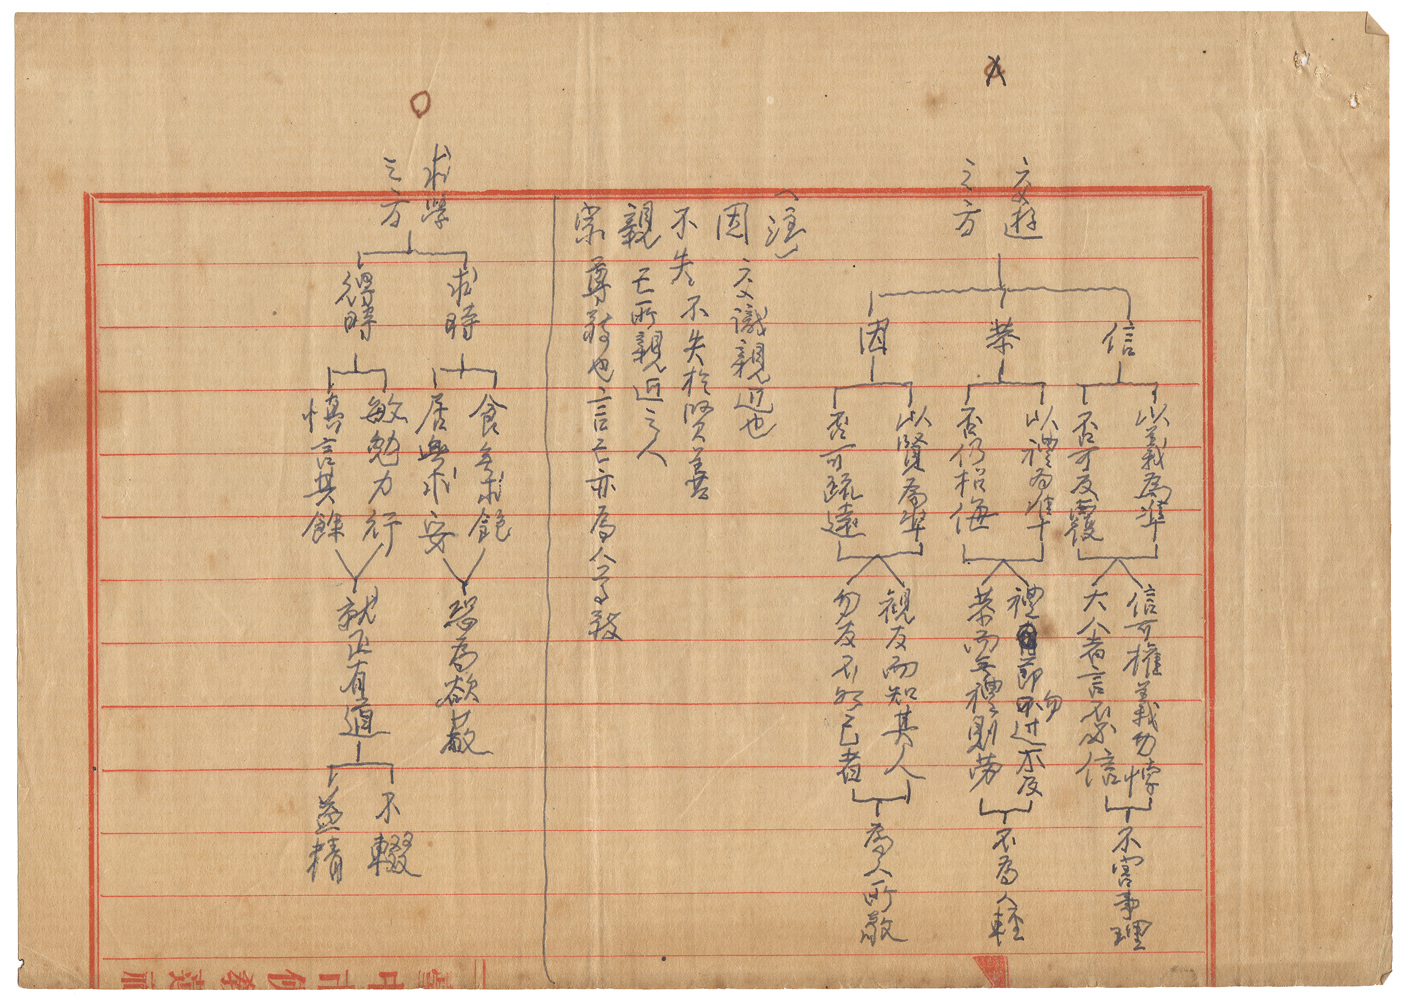 交遊
之方
信
榮
因
以義為準
否可反覆
以禮為準
否仍招侮
以賢為準
否可疏遠
信可權義勿悖
大人者言不必信
禮節勿過不及
榮而無禮則勞
觀友而知其人
勿友不如己者
不害事理
不為人輕
為人所敬
(注)
因 交識親近也
不失 不失於賢善
親 己所親近之人
宗 尊敬也言己亦為人尊敬
求學
之方
求時
得時
食無求飽
居無求安
敏勉力行
慎言其餘
恐為欲蔽
就正有道
不輟
益精
臺中市佛教蓮社